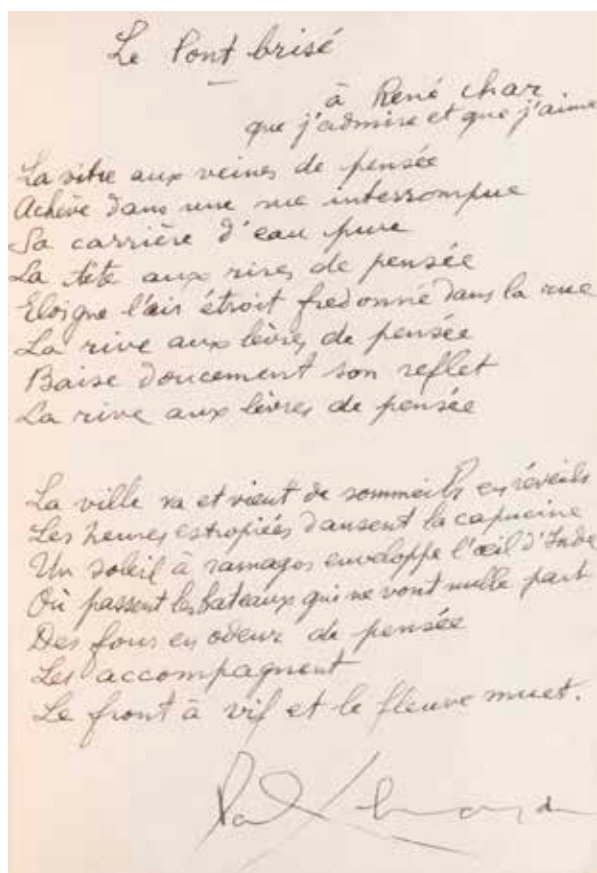 Le Pont brisé
à René Char
que j'admire et que j'aime
La vitre aux veines de pensée
Achève dans une rue interrompue
Sa carrière d'eau pure
La tête aux rires de pensée
Eloigne l'air étroit fredonné dans la rue
La rive aux lèvres de pensée
Baise doucement son reflet
La rive aux lèvres de pensée
La ville va et vient de sommeils en réveils
Les heures estropiées dansent la capucine
Un soleil à ramages enveloppe l'œil d'Inde
Où passent les bateaux qui ne vont nulle part
Des fous en odeur de pensée
Les accompagnent
Le front à vif et le fleuve muet.
Paul Eluard